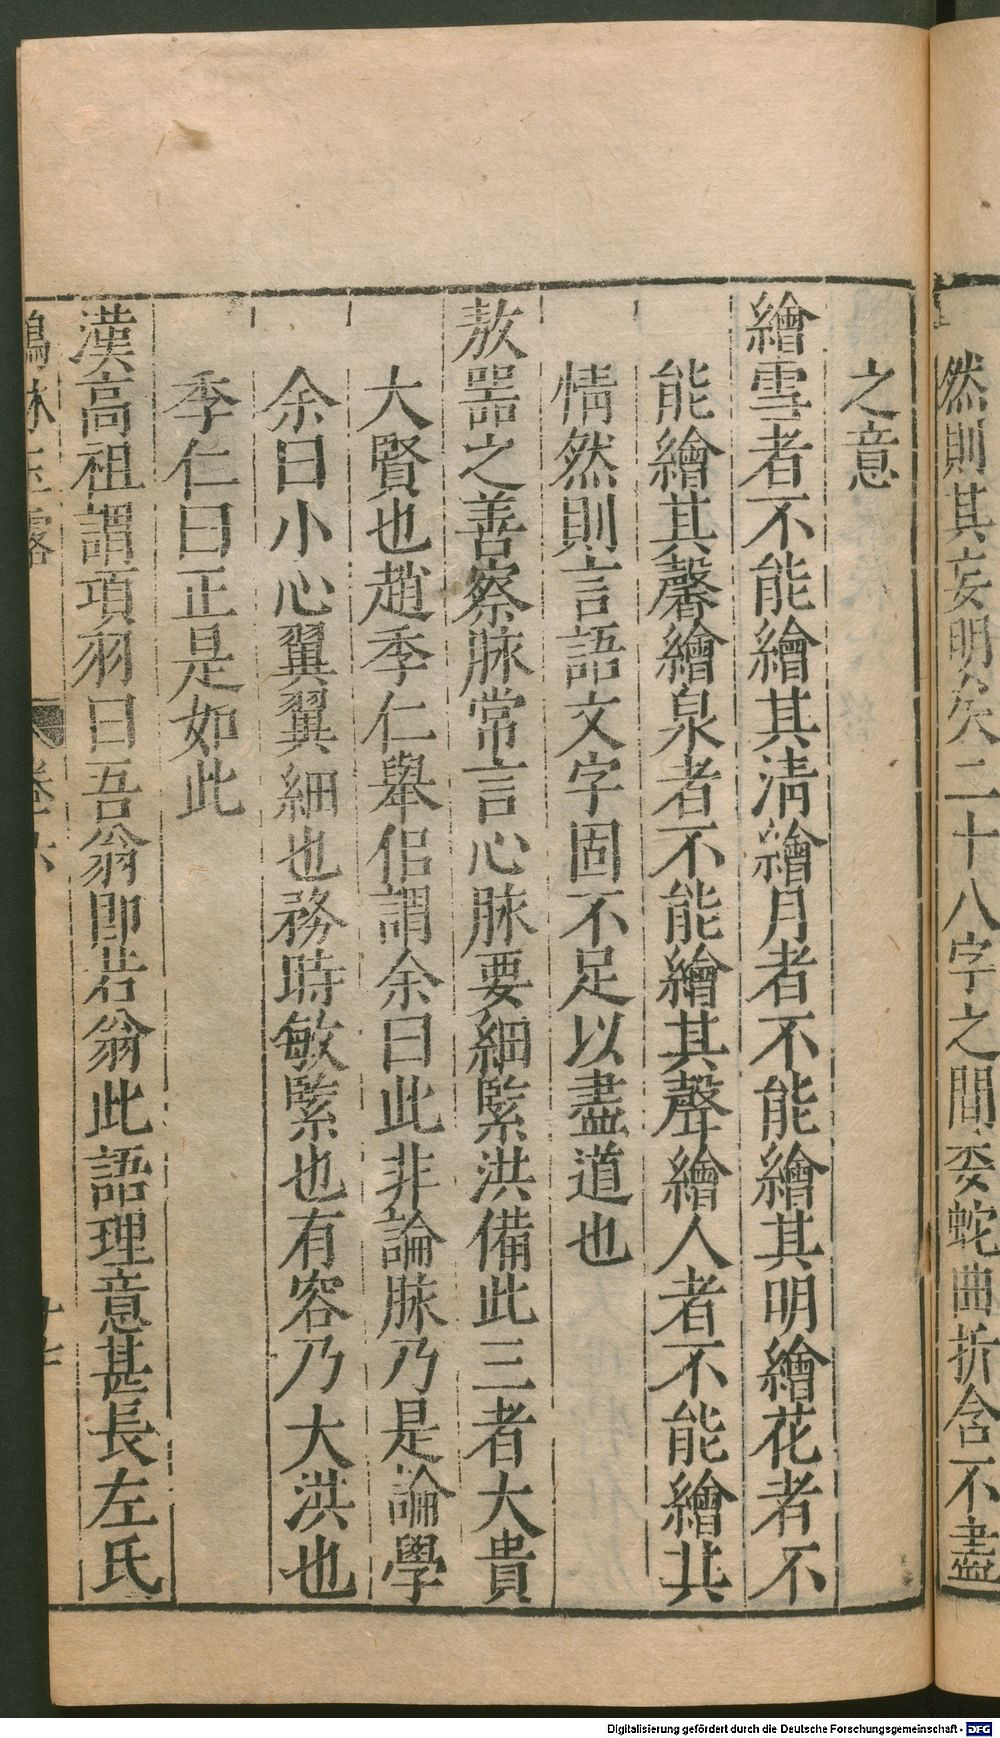 然則其妄明矣二十八字之間委蛇曲折含不盡
之意
繪雪者不能繪其清繪月者不能繪其明繪花者不
能繪其馨繪泉者不能繪其聲繪人者不能繪其
情然則言語文字固不足以盡道也
敖器之善察脉常言心脉要細緊洪備此三者大貴
大賢也趙季仁舉侶謂余曰此非論脉乃是論學
余曰小心翼翼細也務時敏緊也有容乃大洪也
季仁曰正是如此
漢高祖謂項羽曰吾翁即若翁此語理意甚長左氏
鶴林玉露 卷六
Digitalisierung gefördert durch die Deutsche Forschungsgemeinschaft - DFG